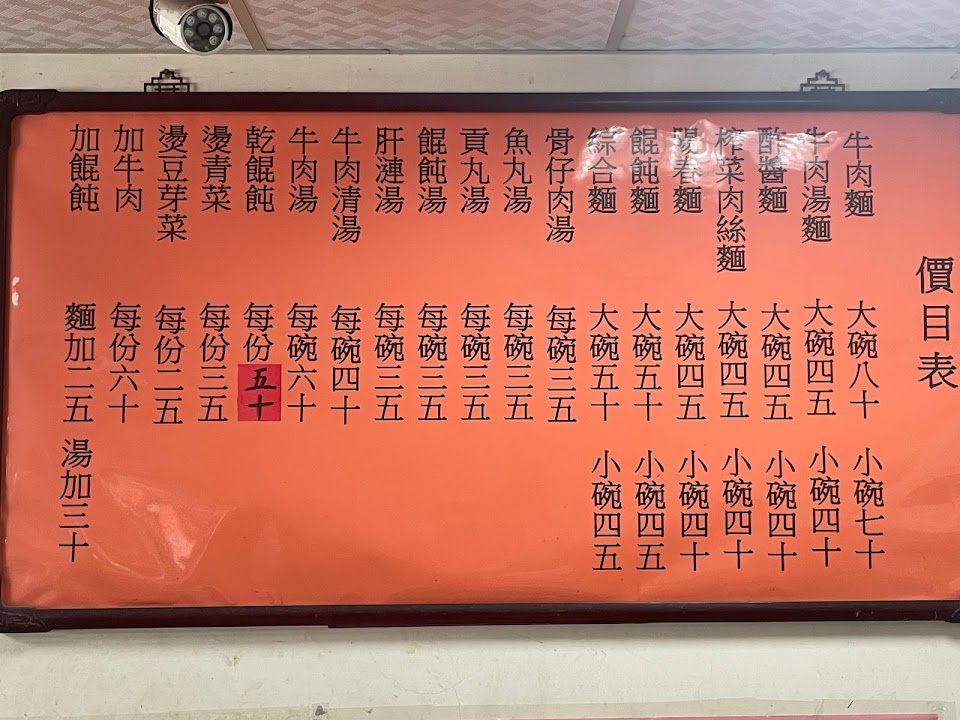 價目表
牛肉麵 大碗八十 小碗七十
牛肉湯麵 大碗四五 小碗四十
酢醬麵 大碗四五 小碗四十
榨菜肉絲麵 大碗四五 小碗四十
陽春麵 大碗四五 小碗四十
餛飩麵 大碗五十 小碗四五
綜合麵 大碗五十 小碗四五
骨仔肉湯 每碗三五
魚丸湯 每碗三五
貢丸湯 每碗三五
餛飩湯 每碗三五
肝漣湯 每碗三五
牛肉清湯 每碗四十
牛肉湯 每碗六十
乾餛飩 每份五十
燙青菜 每份三五
燙豆芽菜 每份二五
加牛肉 每份六十
加餛飩 麵加二五 湯加三十